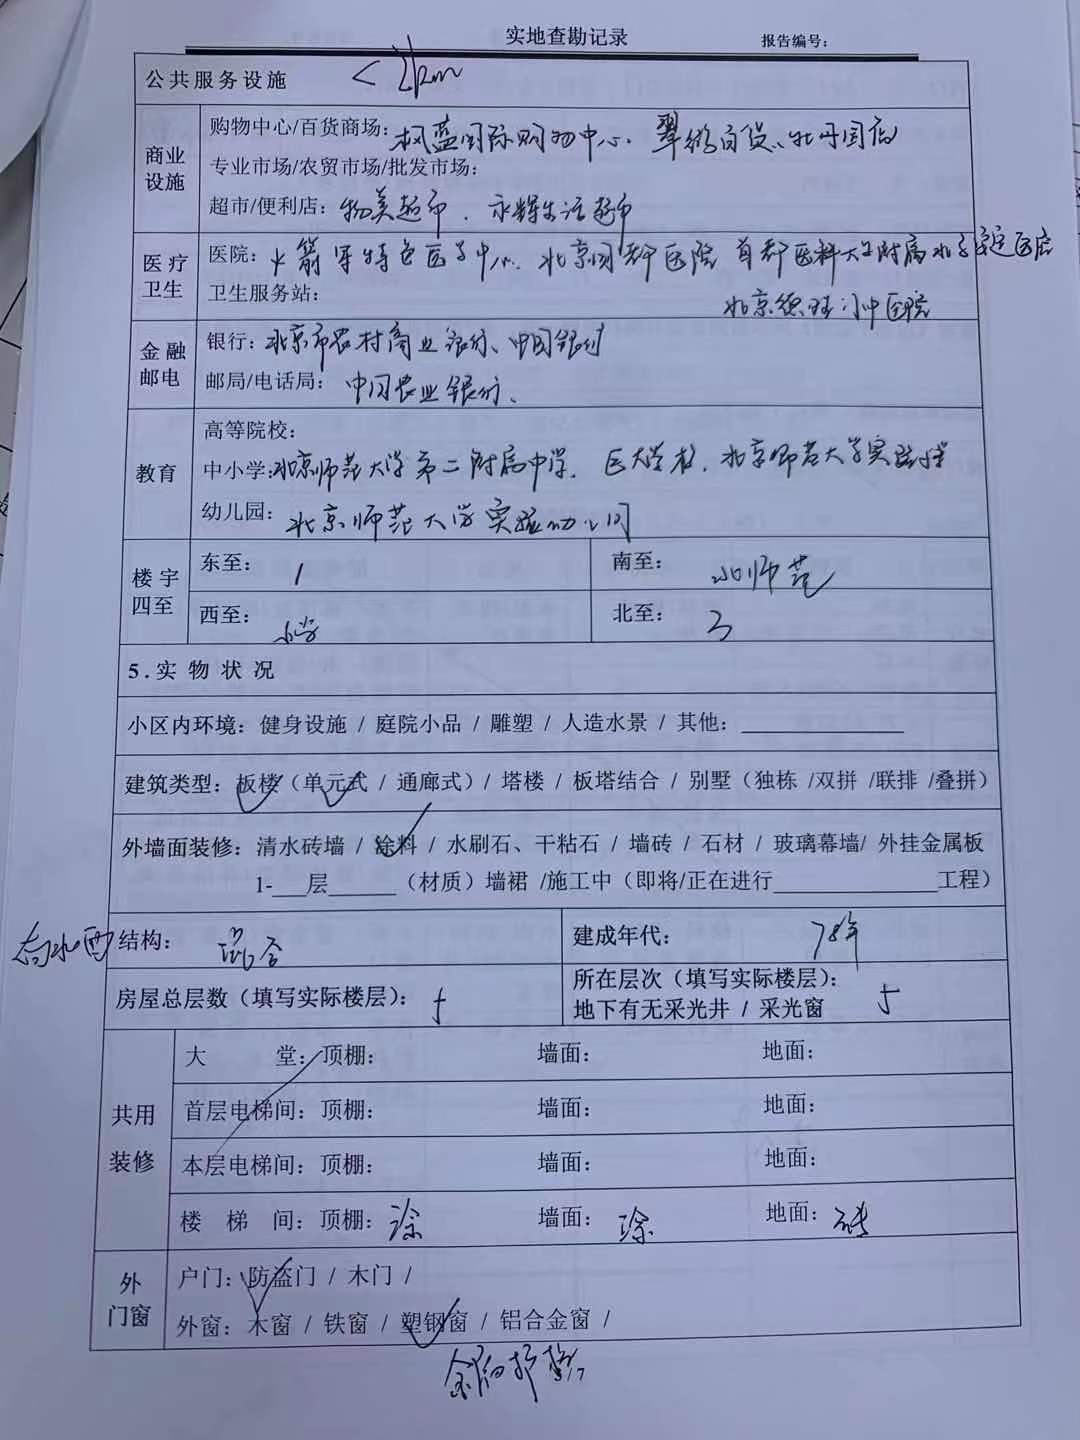 实地查勘记录 报告编号：
公共服务设施 <2km
商业设施
购物中心/百货商场：枫蓝国际购物中心、翠微百货、牡丹园店
专业市场/农贸市场/批发市场：
超市/便利店：物美超市、永辉生活超市
医疗卫生
医院：火箭军特色医学中心、北京同新医院 首都医科大学附属北京安定医院
卫生服务站： 北京德 中医院
金融邮电
银行：北京市农村商业银行、中国银行
邮局/电话局：中国农业银行、
教育
高等院校：
中小学：北京师范大学第二附属中学、 学校、北京师范大学实验小学
幼儿园：北京师范大学实验幼儿园
楼宇四至
东至：1 南至：北师范
西至：小学 北至：3
5.实物状况
小区内环境：健身设施 / 庭院小品 / 雕塑 / 人造水景 / 其他：
建筑类型：板楼（单元式 / 通廊式）/ 塔楼 / 板塔结合 / 别墅（独栋 /双拼 /联排 /叠拼）
外墙面装修：清水砖墙 / 涂料 / 水刷石、干粘石 / 墙砖 / 石材 / 玻璃幕墙/ 外挂金属板
1-___层______（材质）墙裙 /施工中（即将/正在进行____________工程）
南北西 结构：混合 建成年代：78年
房屋总层数（填写实际楼层）：5 所在层次（填写实际楼层）：5
地下有无采光井 / 采光窗
共用装修
大堂：顶棚： 墙面： 地面：
首层电梯间：顶棚： 墙面： 地面：
本层电梯间：顶棚： 墙面： 地面：
楼梯间：顶棚：涂 墙面：涂 地面：砖
外门窗
户门：防盗门 / 木门 /
外窗：木窗 / 铁窗 / 塑钢窗 / 铝合金窗 /